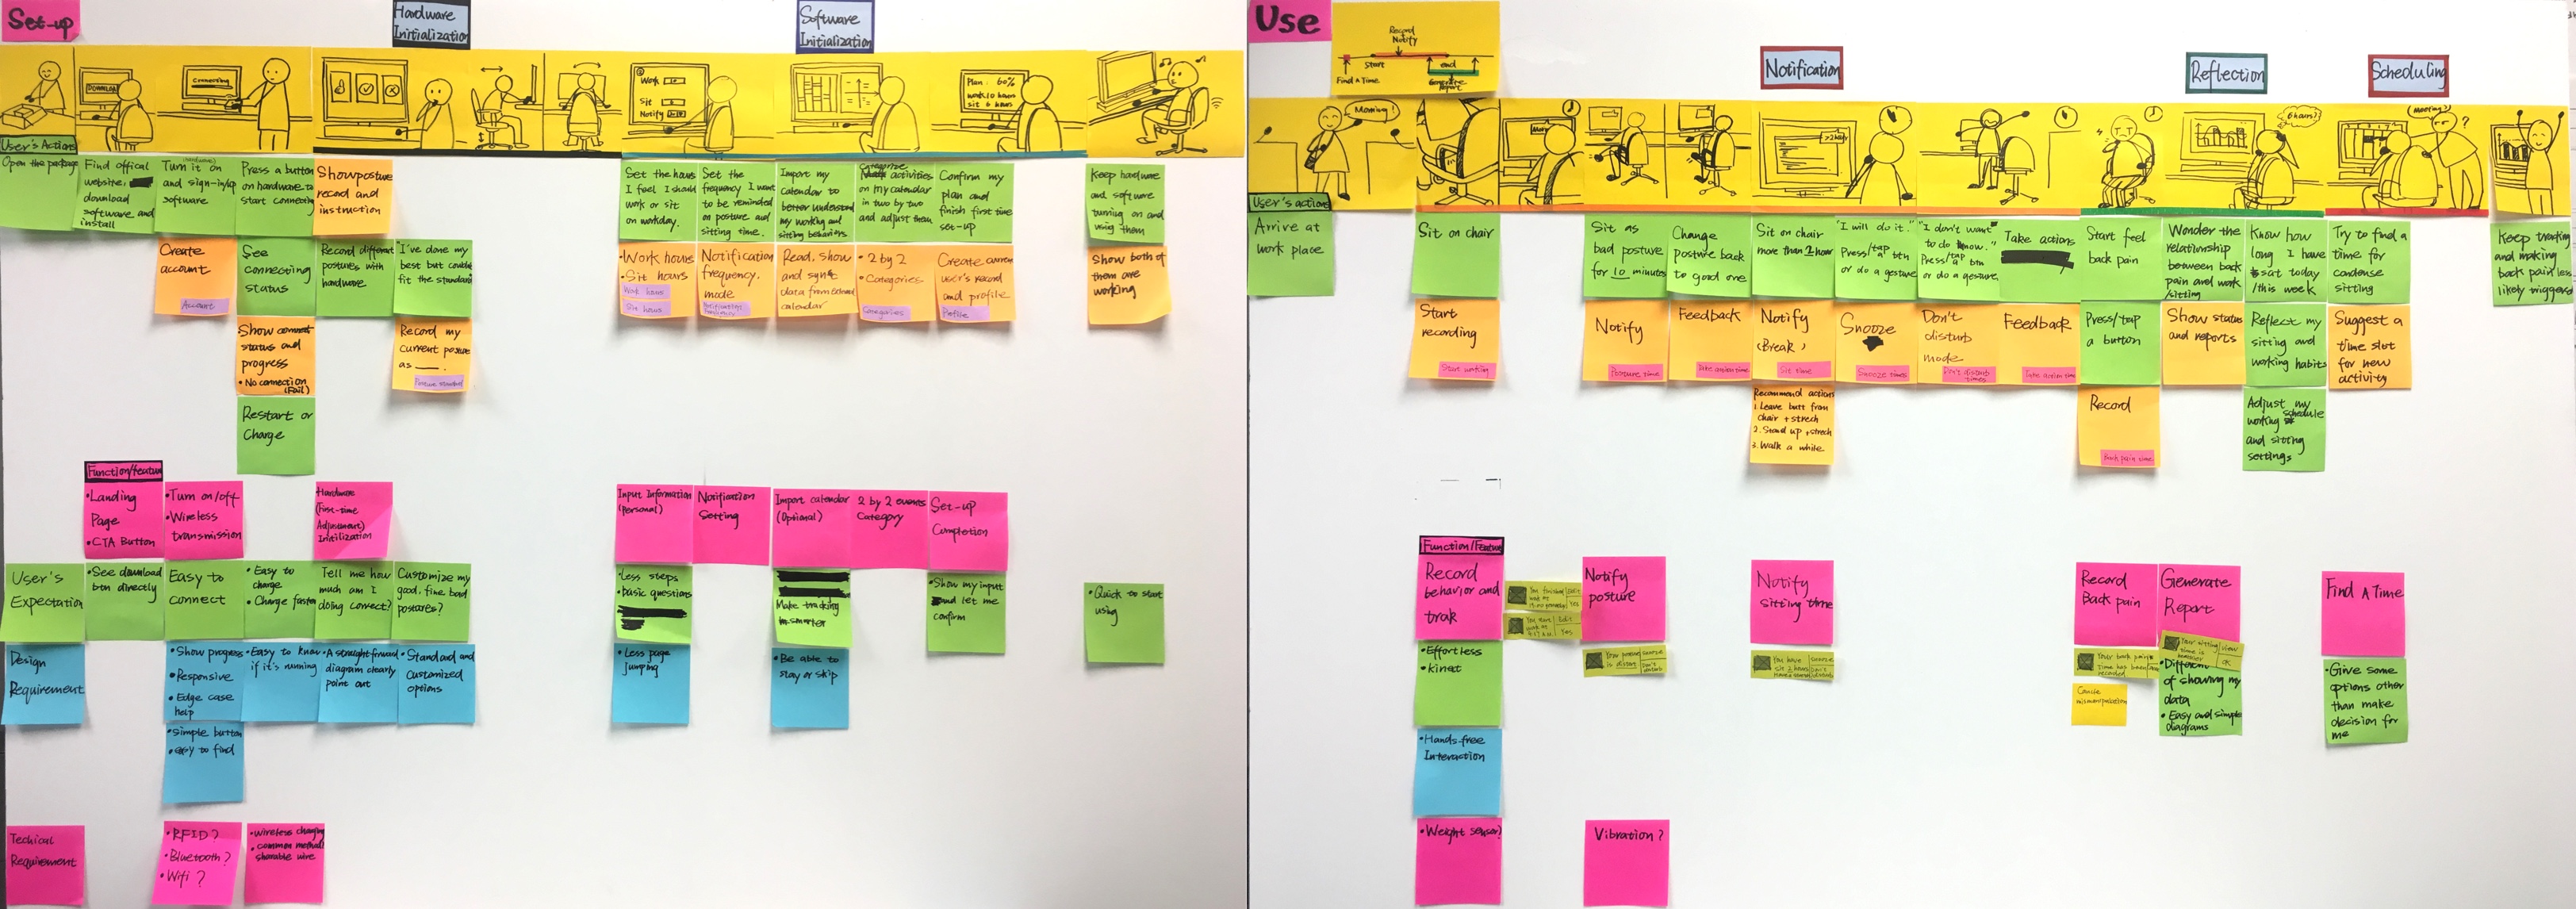 Set-up
Hardware
Initialization
Software
Initialization
DOWNLOAD
Connecting
Work
Sit
Notify
Plan: 60%
work 10 hours
sit 6 hours
User's Actions
Open the package
Find offical
website,
download
software and
install
Turn it on
(hardware)
and sign-in/up
software
Press a button
on hardware to
start connecting
Show posture
record and
instruction
Set the hours
I feel I should
work or sit
on workday.
Set the
frequency I want
to be reminded
on posture and
sitting time.
Import my
calendar to
better understand
my working and
sitting behaviors
Categorize
activities
on my calendar
in two by two
and adjust them
Confirm my
plan and
finish first time
set-up
Keep hardware
and software
turning on and
using them
Create
account
Account
See
connecting
status
Record different
postures with
hardware
"I've done my
best but couldn't
fit the standard
•Work hours
•Sit hours
Work hours
Sit hours
Notification
frequency,
mode
Notification
frequency
Read, show
and sync
data from External
calendar
• 2 by 2
• Categories
Categories
Create current
user's record
and profile
Profile
Show both of
them are
working
Show connect
status and
progress
• No connection
(Fail)
Record my
current posture
as ___.
Posture standard
Restart or
Charge
Function/feature
•Landing
Page
•CTA Button
•Turn on/off
•Wireless
transmission
Hardware
(First-time
Adjustment)
Initilization
Input Information
(Personal)
Notification
Setting
Import calendar
(Optional)
2 by 2 events
Category
Set-up
Completion
User's
Expectation
•See download
btn directly
Easy to
connect
• Easy to
charge
• Charge faster
Tell me how
much am I
doing correct?
Customize my
good, fine bad
postures?
•Less steps
•basic questions
Make tracking
smarter
•Show my input
and let me
confirm
•Quick to start
using
Design
Requirement
•Show progress
•Responsive
•Edge case
help
•Easy to know
if it's running
•A straightforward
diagram clearly
point out
•Standard and
Customized
options
•Less page
jumping
•Be able to
stay or skip
•Simple button
•easy to find
Techical
Requirement
•RFID?
•Bluetooth?
•Wifi ?
•Wireless charging
•common method/
sharable wire
Use
Record
Notify
Start
end
Find a Time
Generate
Report
Notification
Reflection
Scheduling
Morning!
>2 hours
6 hours?
(Meeting?)
?
User's actions
Arrive at
work place
Sit on chair
Sit as
bad posture
for 10 minutes
Change
posture back
to good one
Sit on chair
more than 2 hour
"I will do it."
Press/tap btn
or do a gesture
"I don't want
to do know."
Press/tap btn
or do a gesture.
Take actions
Start feel
back pain
Wonder the
relationship
between back
pain and work
/sitting
Know how
long I have
sat today
/this week
Try to find a
time for
condense
sitting
Keep tracking
and making
back pain less
likely triggered
Start
recording
Start working
Notify
Posture time
Feedback
Take action time
Notify
(Break)
Sit time
Snooze
Snooze times
Don't
disturb
mode
Don't disturb
times
Feedback
Take action time
Press/tap
a button
Show status
and reports
Reflect my
sitting and
working habits
Suggest a
time slot
for new
activity
Recommend actions
1. Leave butt from
chair + strech
2. Stand up + strech
3. Walk a while
Record
Back pain time
Adjust my
working schedule
and sitting
settings
Function/Feature
Record
behavior and
trak
Notify
posture
Notify
sitting time
Record
Back pain
Generate
Report
Find A Time
Edit
Yes
Edit
Yes
Your posture
is distort
Snooze
Don't
disturb
You have
sit 2 hours
Snooze
Your sitting
time is
view
OK
Your back pain
time has been
recorded
•Effortless
•kinect
•Different
of showing my
data
• Easy and simple
diagrams
•Give some
options other
than make
decision for
me
•Hands-free
Interaction
•Weight sensor?
Vibration?